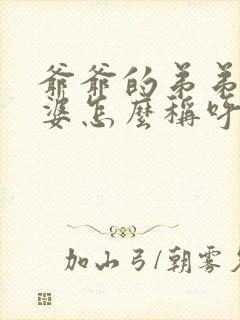 爺爺的弟弟
婆怎麼稱呼
加山弓/朝霧